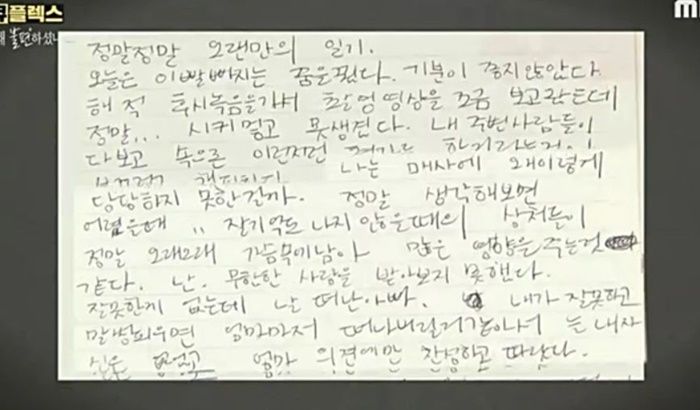 플렉스
불편하셨나
정말정말 오랜만의 일기.
오늘은 이빨빠지는 꿈을 꿨다. 기분이 좋지않았다
해적 후시녹음을가서 촬영영상을 조금 보고왔는데
정말... 시커멓고 못생겼다. 내 주변사람들이
다보고 속으론 이런저런 하기라는게.
나는 매사에 왜이렇게
당당하지 못한걸까. 정말 생각해보면
어렸을때 .. 잘기억도 나지 않을때의 상처들이
정말 오래오래 가슴속에남아 많은 영향을 주는것
같다. 난. 무한한 사랑을 받아보지 못했다.
잘못한게 없는데 날 떠난아빠. 내가 잘못하고
말썽피우면 엄마마저 떠나버릴거같아서 는 내자
엄마 의견에만 찬성하고 따랐다.